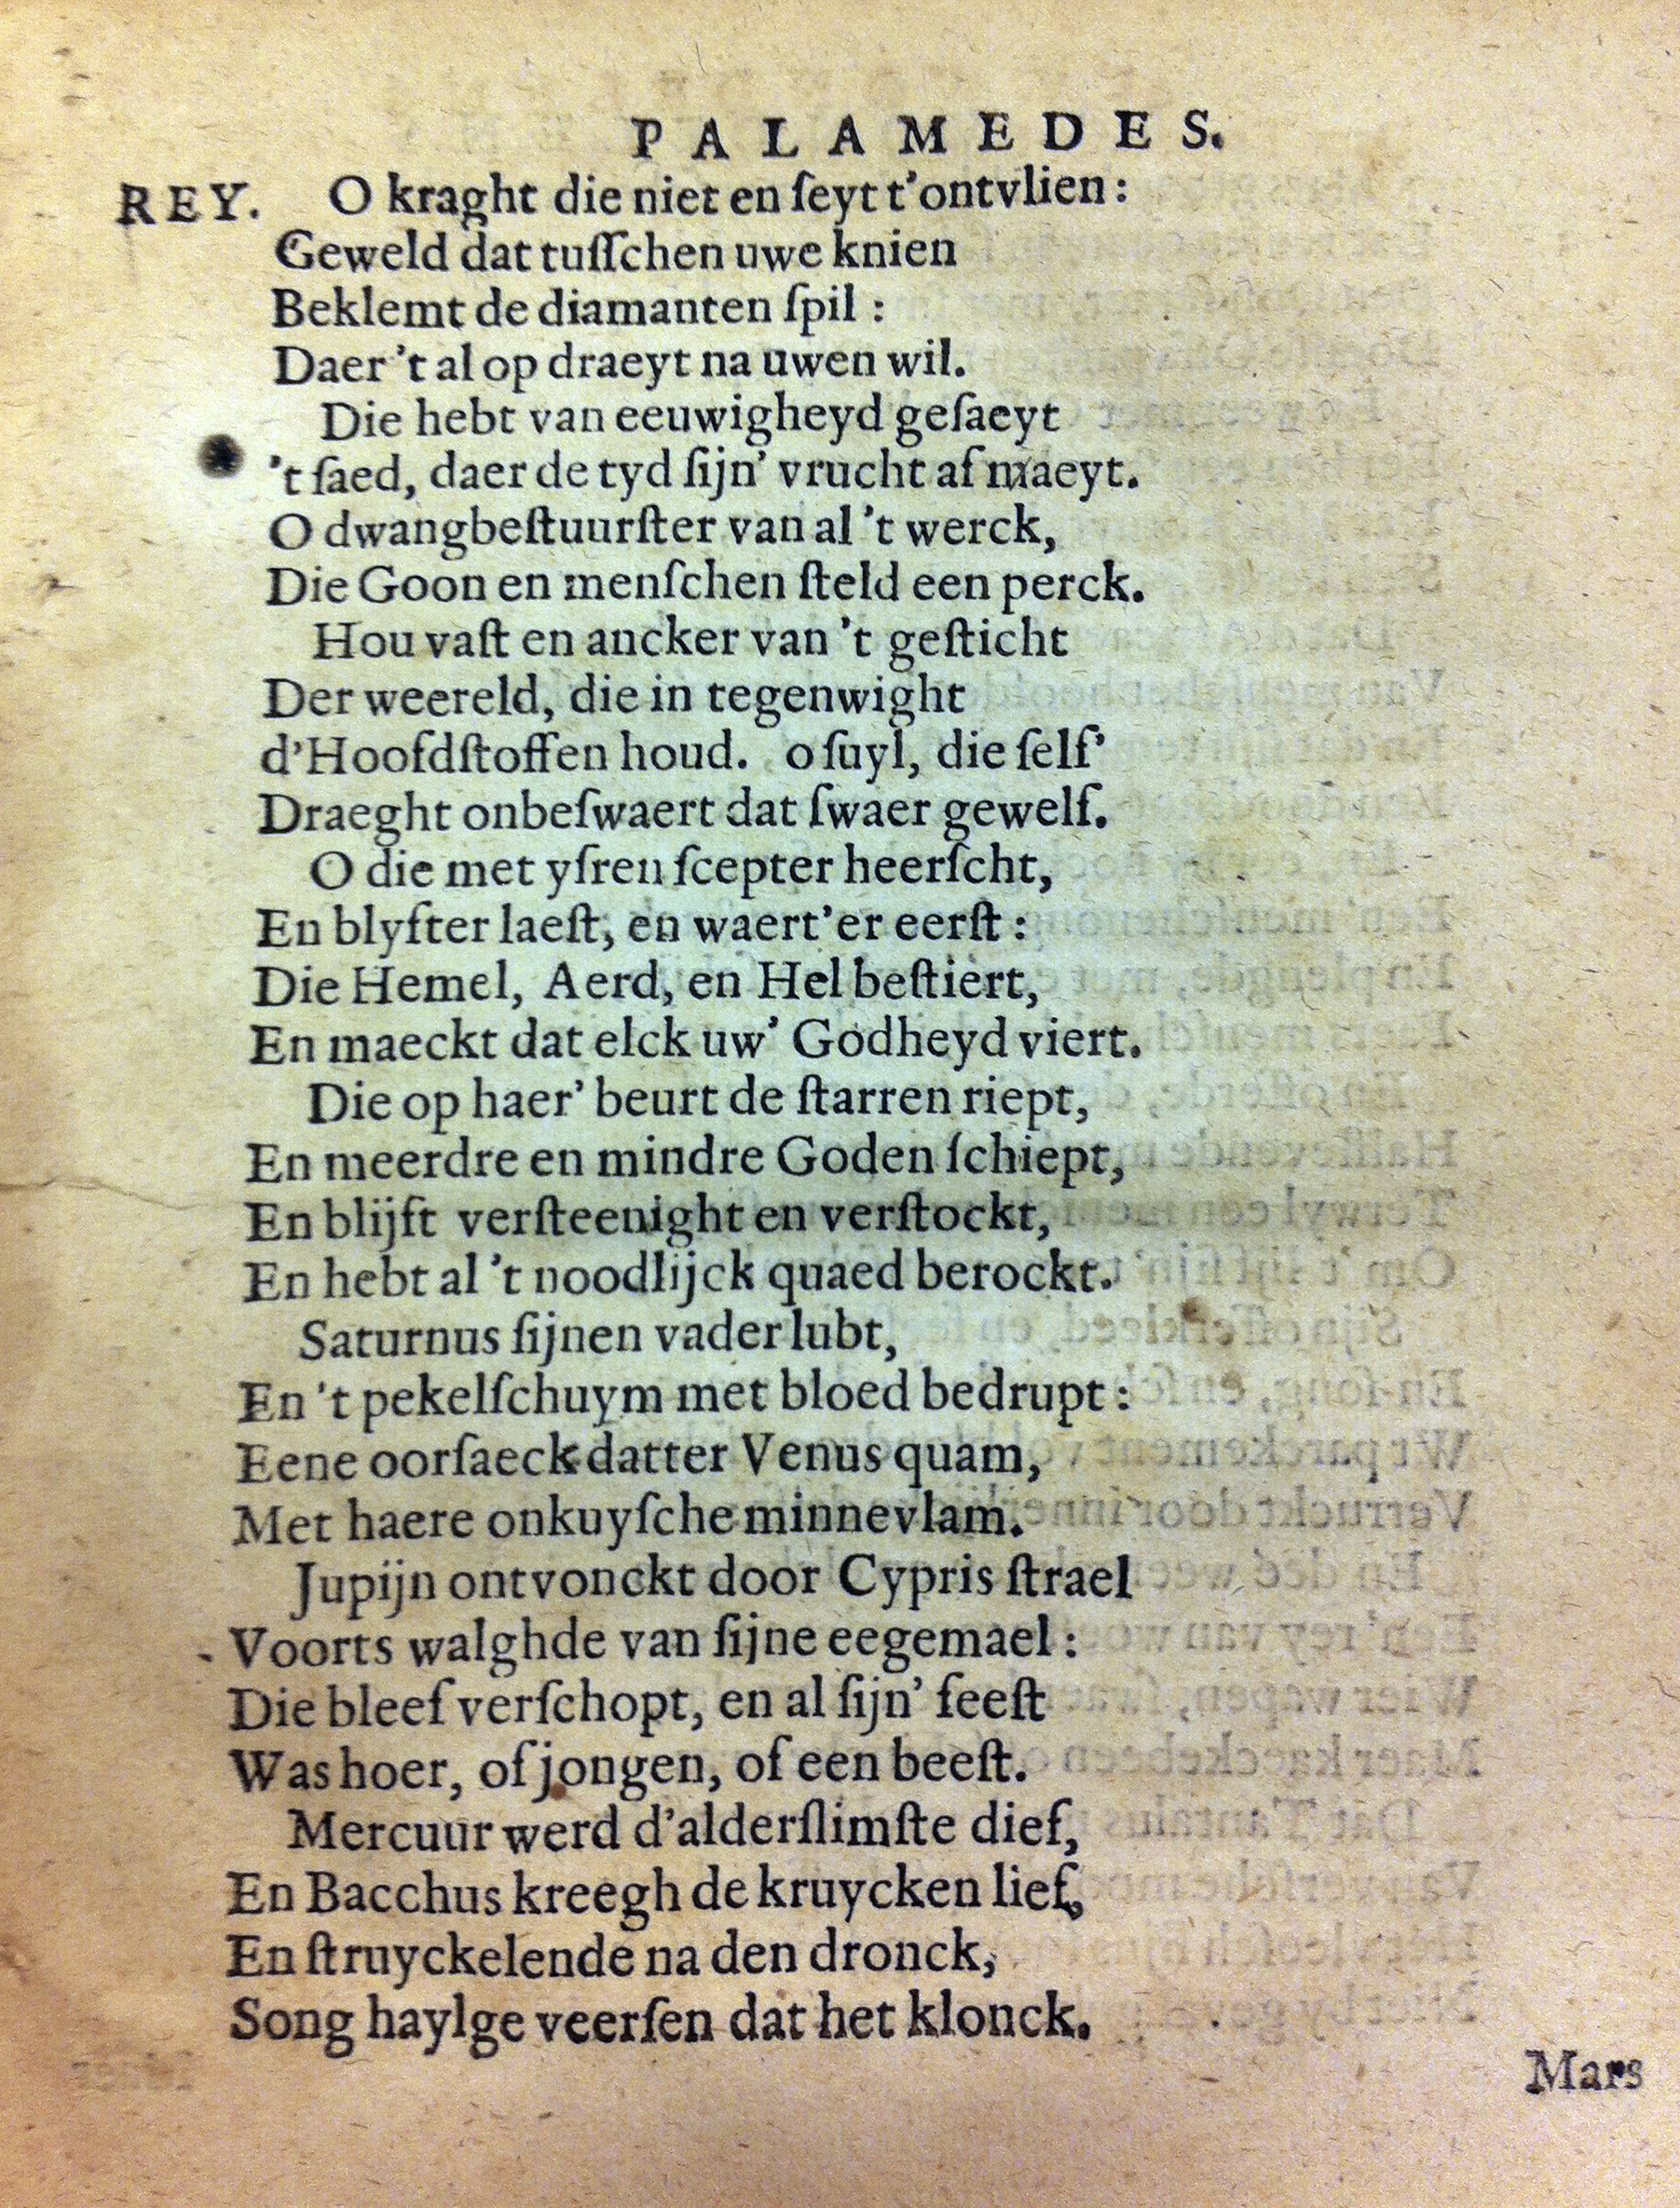 PALAMEDES.
REY. O kraght die niet en ſeyt t'ontvlien:
Geweld dat tuſſchen uwe knien
Beklemt de diamanten ſpil:
Daer 't al op draeyt na uwen wil.
Die hebt van eeuwigheyd geſaeyt
't ſaed, daer de tyd ſijn' vrucht af maeyt.
O dwangbeſtuurſter van al 't werck,
Die Goon en menſchen ſteld een perck.
Hou vaſt en ancker van 't geſticht
Der weereld, die in tegenwight
d'Hoofdſtoffen houd. o ſuyl, die ſelf'
Draeght onbeſwaert dat ſwaer gewelf.
O die met yſren ſcepter heerſcht,
En blyfter laeſt, en waert'er eerſt:
Die Hemel, Aerd, en Hel beſtiert,
En maeckt dat elck uw' Godheyd viert.
Die op haer' beurt de ſtarren riept,
En meerdre en mindre Goden ſchiept,
En blijft verſteenight en verſtockt,
En hebt al 't noodlijck quaed berockt.
Saturnus ſijnen vader lubt,
En 't pekelſchuym met bloed bedrupt:
Eene oorſaeck datter Venus quam,
Met haere onkuyſche minnevlam.
Jupijn ontvonckt door Cypris ſtrael
Voorts walghde van ſijne eegemael:
Die bleef verſchopt, en al ſijn' feeſt
Was hoer, of jongen, of een beeſt.
Mercuur werd d'alderſlimſte dief,
En Bacchus kreegh de kruycken lief,
En ſtruyckelende na den dronck,
Song haylge veerſen dat het klonck.
Mars